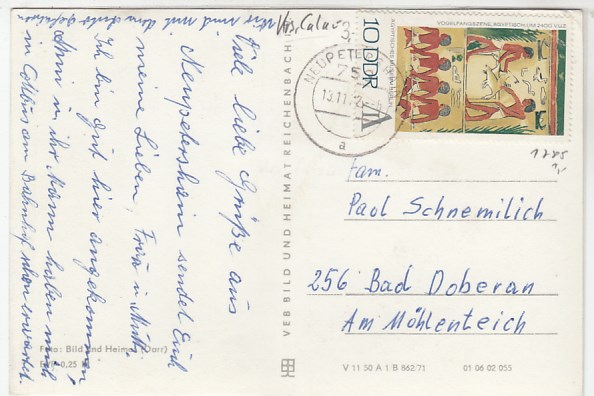 Viele liebe Grüße aus
Neupetershain sendet Euch
meine Lieben, Frau u. Mutti
Ich bin gut hier angekommen
u. ihr Mann haben mich
in Cottbus am Bahnhof schon erwartet.
Wir sind mit dem Auto gefahren
Krs. Calau
NEUPETERS
13.11.72
a
10 DDR
Fam.
Paul Schnemilich
256 Bad Doberan
Am Mühlenteich
VEB BILD UND HEIMAT REICHENBACH
Foto: Bild und Heimat (Darr)
EVP 0,25 M
V 11 50 A 1 B 862/71
01 06 02 055